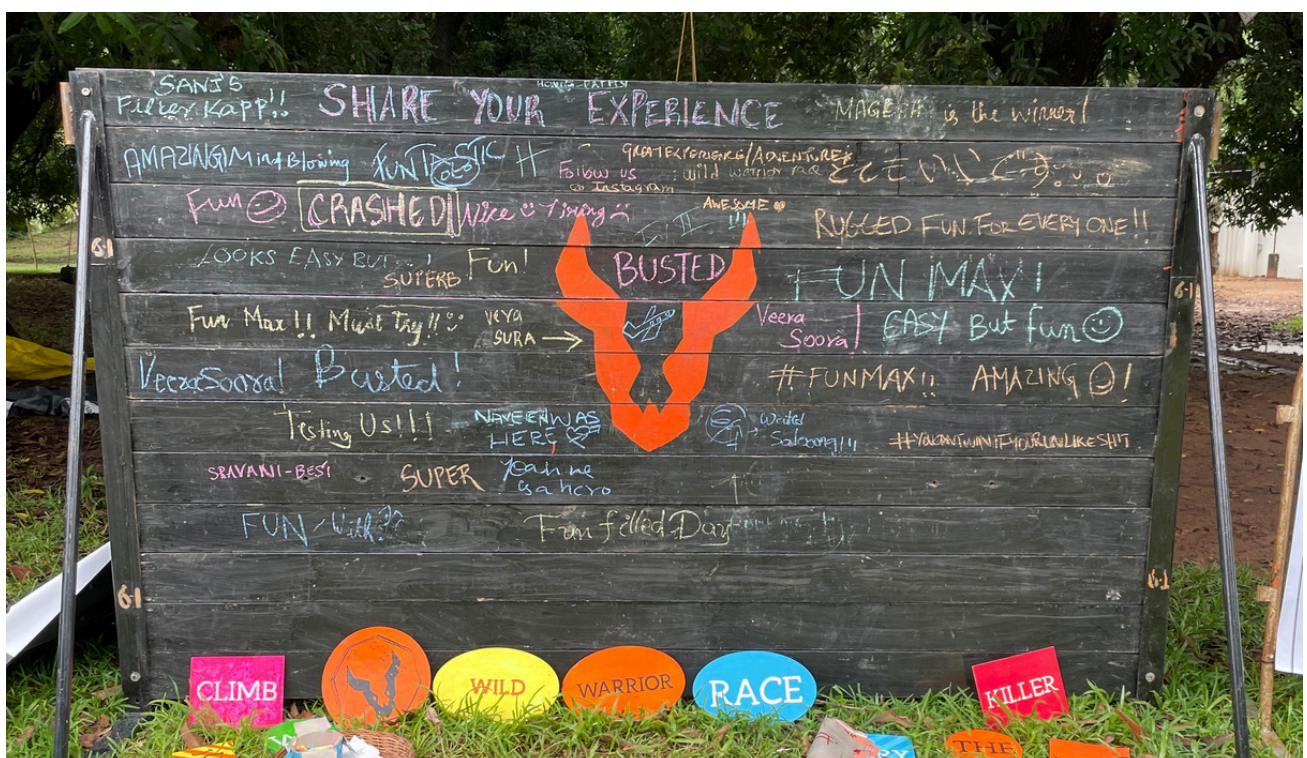 SANJ'S
Filter Kapp!!
SHARE YOUR EXPERIENCE
MAGESH is the winner!
AMAZING! Mind Blowing
FUNTASTIC
Follow us
on Instagram
GREAT EXPERIENCE/ADVENTURE
wild warrior race
とてもいいです
Fun
CRASHED!
Nice
Tiring
AWESOME
!!!
RUGGED FUN FOR EVERYONE!!
LOOKS EASY BUT...!
SUPERB
Fun!
BUSTED
FUN MAX!
Fun Max!! Must Try!!
VEYA
SURA
Veera
Soora!
EASY But fun
VeeraSoora! Busted!
#FUNMAX!!
AMAZING !
Testing Us!!!!
NAVEEN WAS
HERE
Wanted
#YOUCANTWINIFYOURUNLIKESHIT
SRAVANI-BEST
SUPER
Jeanne
is a hero
FUN - With??
Fun filled Day
6-1
6-1
6-1
6-1
CLIMB
WILD
WARRIOR
RACE
KILLER
THE